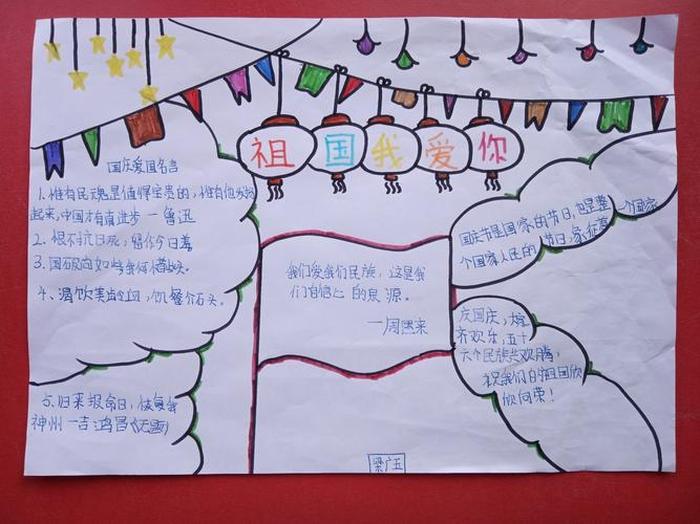 祖国我爱你
国庆爱国名言
1、惟有民魂是值得宝贵的，惟有他发扬
起来，中国才有真进步 — 鲁迅
2、恨不抗日死，留作今日羞
3、国破尚如此我何惜此头。
4、渴饮美齿血，饥餐个石头。
5、归来报命日，恢复我
神州 一吉鸿昌《无题》
我们爱我们民族，这是我
们自信心的泉源。
—周恩来
国庆节是国家的节日，也是整
个国家人民的节日，象征着一个国家
庆国庆，大家
齐欢乐，五十
六个民族共欢腾，
祝我们的祖国欣
欣向荣！
梁广五